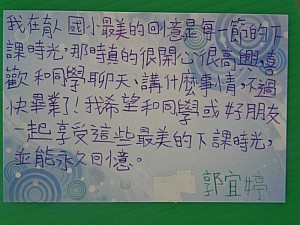 我在育人國小最美的回憶是每一節的下
課時光,那時真的很開心很高興,喜
歡和同學聊天、講什麼事情,不過
快畢業了!我希望和同學或好朋友
一起享受這些最美的下課時光,
並能永久回憶。
郭宜婷